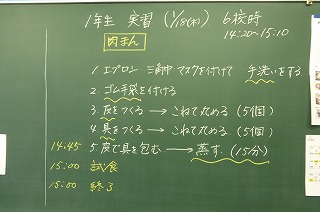 1年生 実習 (1/18(木)) 6校時
14:20~15:10
肉まん
1. エプロン 三角巾 マスクを付けて 手洗いをする
2. ゴム手袋を付ける
3. 皮をつくる → こねて丸める (5個)
4. 具をつくる → こねて丸める (5個)
14:45 5. 皮で具を包む → 蒸す。(15分)
15:00 試食
15:00 終了